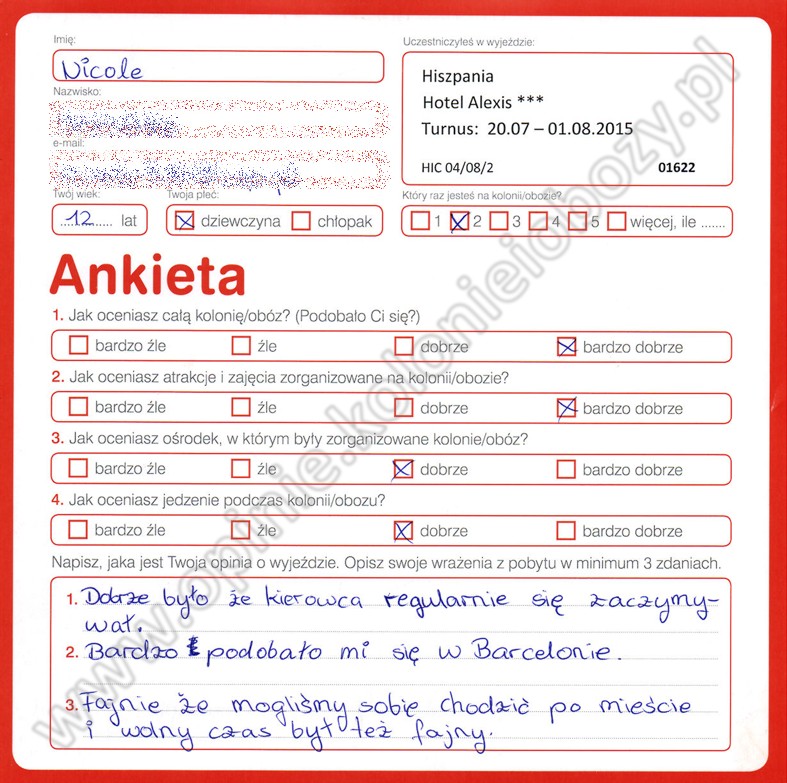 Imię:
Uczestniczyłeś w wyjeździe:
Nicole
Hiszpania
Hotel Alexis ***
Turnus: 20.07 – 01.08.2015
HIC 04/08/2 01622
Nazwisko:
e-mail:
Twój wiek: Twoja płeć: Który raz jesteś na kolonii/obozie?
12 lat dziewczyna chłopak 1 2 3 4 5 więcej, ile .......
Ankieta
1. Jak oceniasz całą kolonię/obóz? (Podobało Ci się?)
bardzo źle źle dobrze bardzo dobrze
2. Jak oceniasz atrakcje i zajęcia zorganizowane na kolonii/obozie?
bardzo źle źle dobrze bardzo dobrze
3. Jak oceniasz ośrodek, w którym były zorganizowane kolonie/obóz?
bardzo źle źle dobrze bardzo dobrze
4. Jak oceniasz jedzenie podczas kolonii/obozu?
bardzo źle źle dobrze bardzo dobrze
Napisz, jaka jest Twoja opinia o wyjeździe. Opisz swoje wrażenia z pobytu w minimum 3 zdaniach.
1. Dobrze było że kierowca regularnie się zaczymy-
wał.
2. Bardzo podobało mi się w Barcelonie.
3. Fajnie że mogliśmy sobię chodzić po mieście
i wolny czas był też fajny.
www.opinie.kolonieiobozy.pl